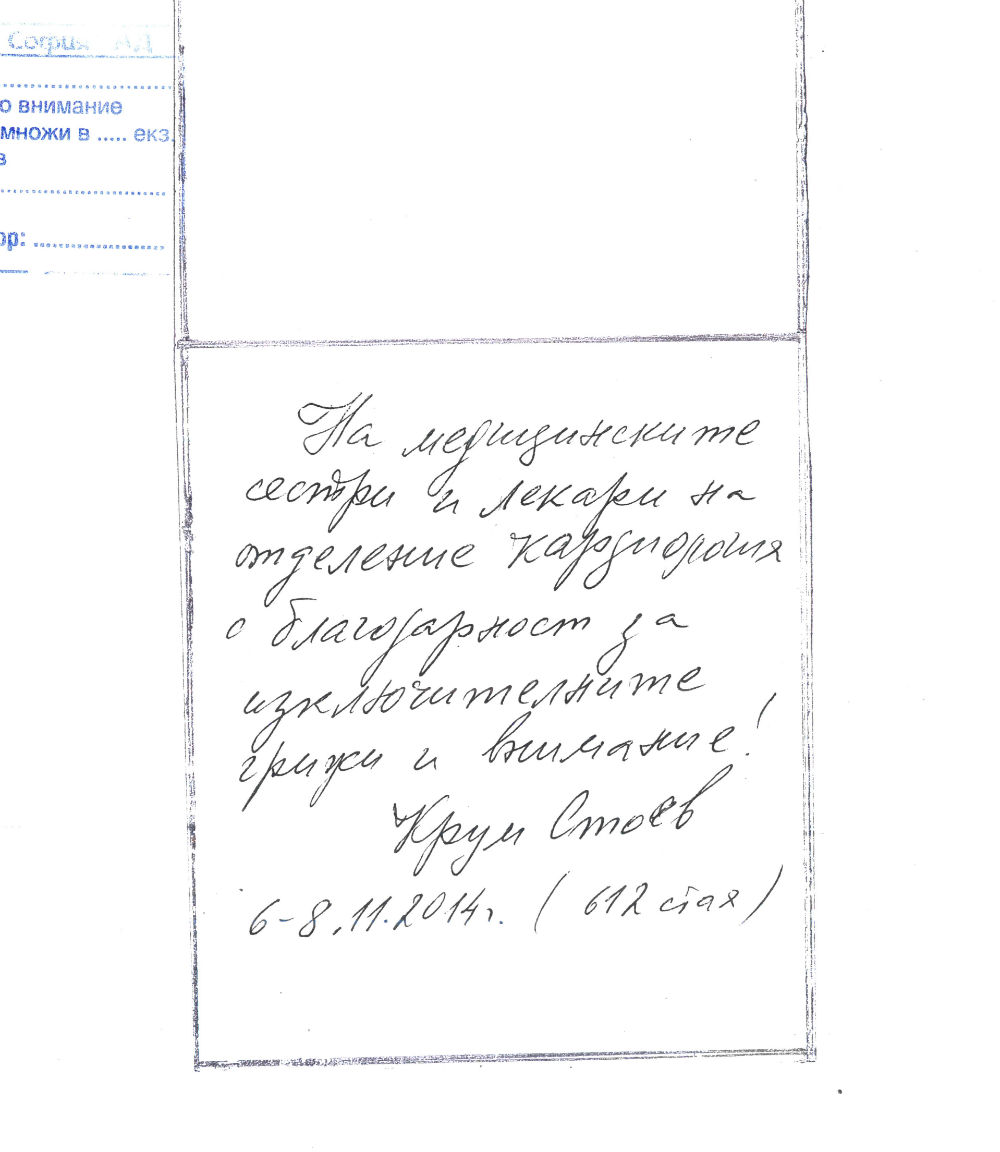 София АД
о внимание
множи в ..... екз.
в
ор: ........................
На медицинските
сестри и лекари на
отделение Кардиология
с благодарност за
изключителните
грижи и внимание!
Крум Стоев
6-8.11.2014г. (612 стая)